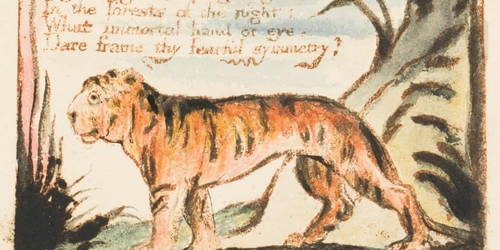 In the forests of the night:
What immortal hand or eye.
Dare frame thy fearful symmetry?